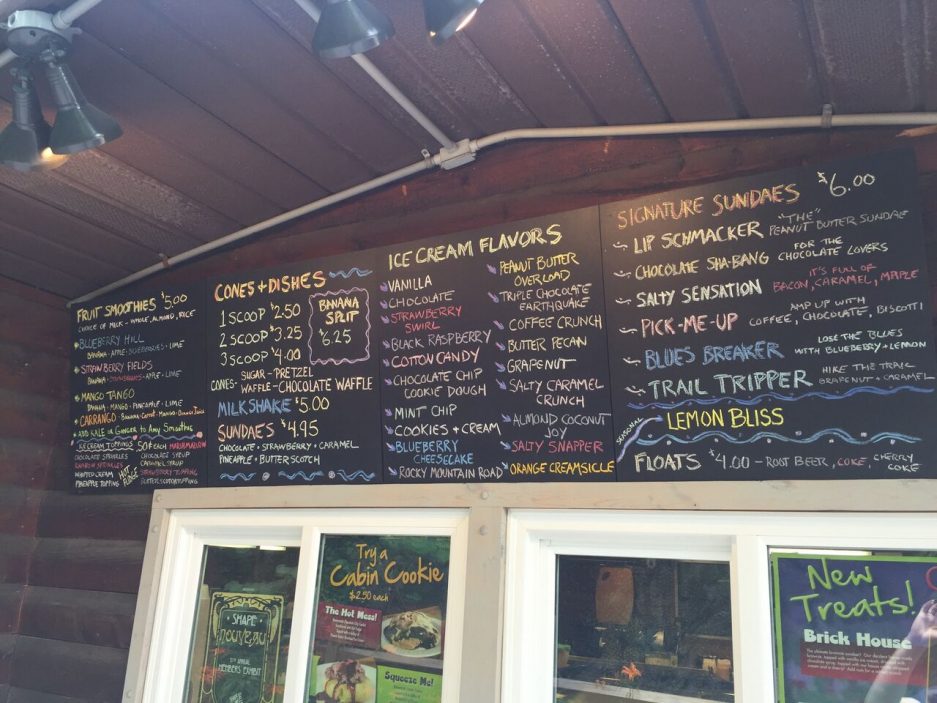 FRUIT SMOOTHIES $5.00
CHOICE OF MILK - WHOLE, ALMOND, RICE
BLUEBERRY HILL
BANANA - APPLE - BLUEBERRIES - LIME
STRAWBERRY FIELDS
BANANA - STRAWBERRIES - APPLE - LIME
MANGO TANGO
BANANA - MANGO - PINEAPPLE - LIME
CARRANGO - BANANA - CARROT - MANGO - ORANGE JUICE
ADD KALE OR GINGER TO ANY SMOOTHIE
ICE CREAM TOPPINGS 50¢ EACH MARSHMALLOW
CHOCOLATE SPRINKLES
CHOCOLATE SYRUP
RAINBOW SPRINKLES
CARAMEL SYRUP
WHIPPED CREAM
HOT FUDGE
STRAWBERRY TOPPING
PINEAPPLE TOPPING
BUTTERSCOTCH TOPPING
CONES + DISHES
1 SCOOP $2.50
2 SCOOP $3.25
3 SCOOP $4.00
BANANA
SPLIT
$6.25
SUGAR - PRETZEL
CONES - WAFFLE - CHOCOLATE WAFFLE
MILKSHAKE $5.00
SUNDAES $4.95
CHOCOLATE + STRAWBERRY + CARAMEL
PINEAPPLE + BUTTERSCOTCH
ICE CREAM FLAVORS
VANILLA
CHOCOLATE
STRAWBERRY
SWIRL
BLACK RASPBERRY
COTTON CANDY
CHOCOLATE CHIP
COOKIE DOUGH
MINT CHIP
COOKIES + CREAM
BLUEBERRY
CHEESECAKE
ROCKY MOUNTAIN ROAD
PEANUT BUTTER
OVERLOAD
TRIPLE CHOCOLATE
EARTHQUAKE
COFFEE CRUNCH
BUTTER PECAN
GRAPENUT
SALTY CARAMEL
CRUNCH
ALMOND COCONUT
JOY
SALTY SNAPPER
ORANGE CREAMSICLE
SIGNATURE SUNDAES $6.00
LIP SCHMACKER "THE"
PEANUT BUTTER SUNDAE
CHOCOLATE SHA-BANG FOR THE
CHOCOLATE LOVERS
SALTY SENSATION IT'S FULL OF
BACON, CARAMEL, MAPLE
PICK-ME-UP AMP UP WITH
COFFEE, CHOCOLATE, BISCOTTI
BLUES BREAKER LOSE THE BLUES
WITH BLUEBERRY + LEMON
TRAIL TRIPPER HIKE THE TRAIL
GRAPENUT + CARAMEL
SEASONAL
LEMON BLISS
FLOATS $4.00 - ROOT BEER, COKE, CHERRY
COKE
SHAPE
NOUVEAU
MEMBERS EXHIBIT
Try a
Cabin Cookie
$2.50 each
The Hot Mess!
Squeeze Me!
New
Treats!
Brick House